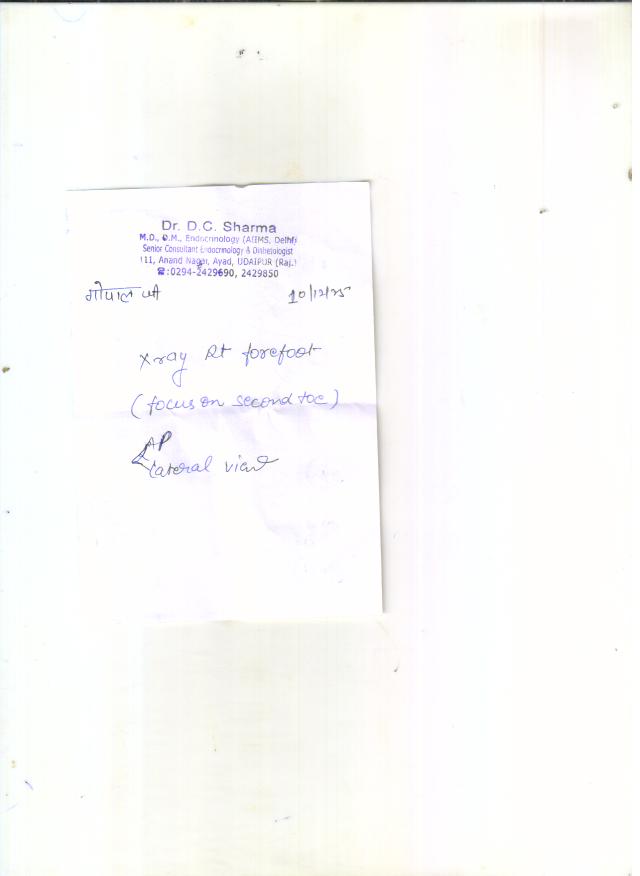 Dr. D.C. Sharma
M.D., D.M., Endocrinology (AIIMS, Delhi)
Senior Consultant Endocrinology & Diabetologist
111, Anand Nagar, Ayad, UDAIPUR (Raj.)
☎:0294-2429690, 2429850
गोपाल जी 10/12/25
Xray Rt forefoot
(focus on second toe)
AP
lateral view